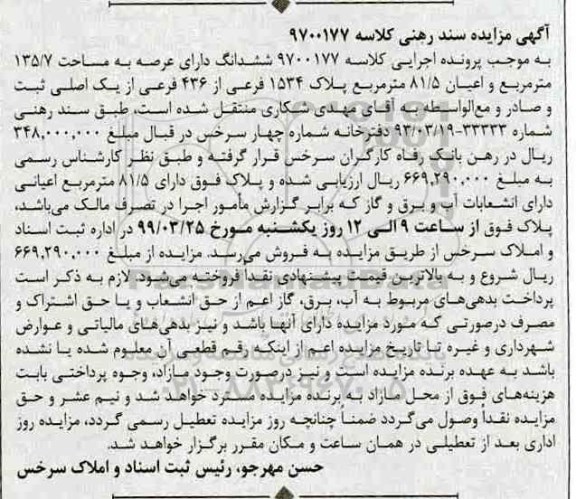 آگهی مزایده سند رهنی کلاسه ۹۷۰۰۱۷۷
به موجب پرونده اجرایی کلاسه ۹۷۰۰۱۷۷ ششدانگ دارای عرصه به مساحت ۱۳۵/۷
مترمربع و اعیان ۸۱/۵ مترمربع پلاک ۱۵۳۴ فرعی از ۴۳۶ فرعی از یک اصلی ثبت
و صادر و مع‌الواسطه به آقای مهدی شکاری منتقل شده است، طبق سند رهنی
شماره ۳۳۳۳۳-۹۳/۰۳/۱۹ دفترخانه شماره چهار سرخس در قبال مبلغ ۳۴۸,۰۰۰,۰۰۰
ریال در رهن بانک رفاه کارگران سرخس قرار گرفته و طبق نظر کارشناس رسمی
به مبلغ ۶۶۹,۲۹۰,۰۰۰ ریال ارزیابی شده و پلاک فوق دارای ۸۱/۵ مترمربع اعیانی
دارای انشعابات آب و برق و گاز که برابر گزارش مأمور اجرا در تصرف مالک می‌باشد،
پلاک فوق از ساعت ۹ الی ۱۲ روز یکشنبه مورخ ۹۹/۰۳/۲۵ در اداره ثبت اسناد
و املاک سرخس از طریق مزایده به فروش می‌رسد. مزایده از مبلغ ۶۶۹,۲۹۰,۰۰۰
ریال شروع و به بالاترین قیمت پیشنهادی نقداً فروخته می‌شود. لازم به ذکر است
پرداخت بدهی‌های مربوط به آب، برق، گاز اعم از حق انشعاب و یا حق اشتراک و
مصرف درصورتی که مورد مزایده دارای آنها باشد و نیز بدهی‌های مالیاتی و عوارض
شهرداری و غیره تا تاریخ مزایده اعم از اینکه رقم قطعی آن معلوم شده یا نشده
باشد به عهده برنده مزایده است و نیز درصورت وجود مازاد، وجوه پرداختی بابت
هزینه‌های فوق از محل مازاد به برنده مزایده مسترد خواهد شد و نیم عشر و حق
مزایده نقداً وصول می‌گردد ضمناً چنانچه روز مزایده تعطیل رسمی گردد، مزایده روز
اداری بعد از تعطیلی در همان ساعت و مکان مقرر برگزار خواهد شد.
حسن مهرجو، رئیس ثبت اسناد و املاک سرخس